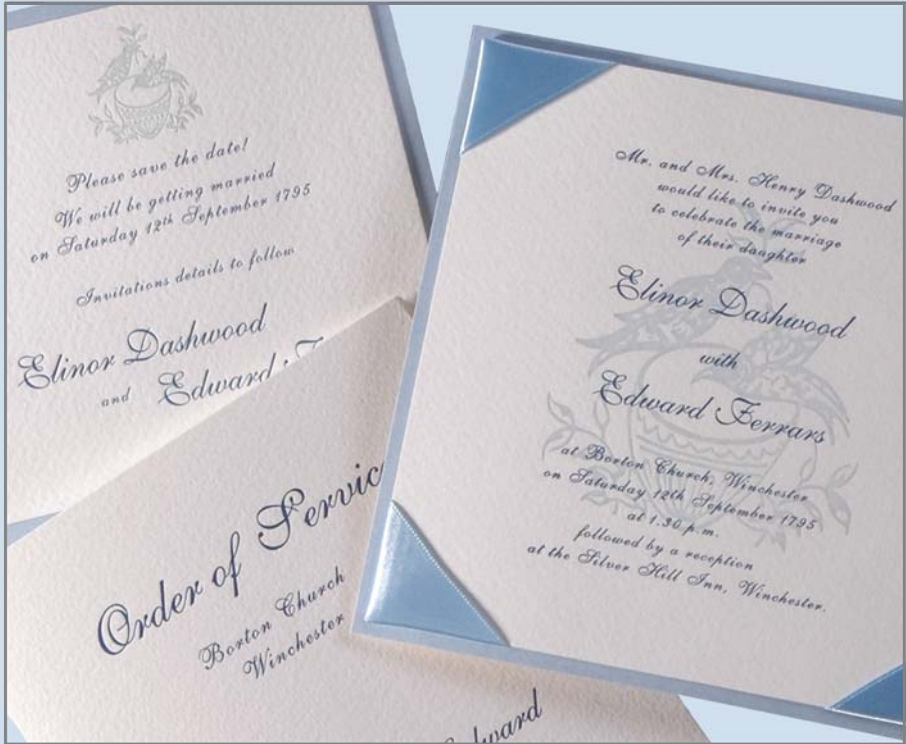 Please save the date!
We will be getting married
on Saturday 12th September 1795
Invitations details to follow
Elinor Dashwood
and Edward
Order of
Borton Church
Winchester
Mr. and Mrs. Henry Dashwood
would like to invite you
to celebrate the marriage
of their daughter
Elinor Dashwood
with
Edward Ferrars
at Borton Church, Winchester
on Saturday 12th September 1795
at 1.30 p.m.
followed by a reception
at the Silver Hill Inn, Winchester.